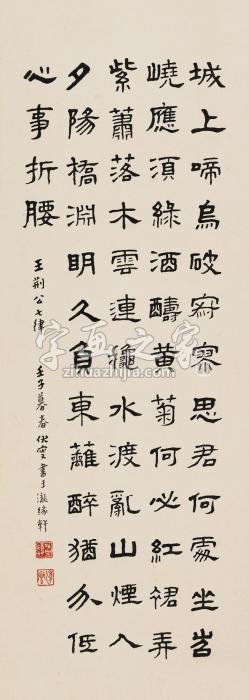 城上啼烏破寂寥思君何處坐岧
嶢應須綠酒醻黃菊何必紅裙弄
紫蕭落木雲連龝水渡亂山煙入
夕陽橋淵明久負東蘺醉猶分低
心事折腰
王荊公七律 壬子暮春伏雯書于漱緣軒
字画之家
zihuazhijia.com